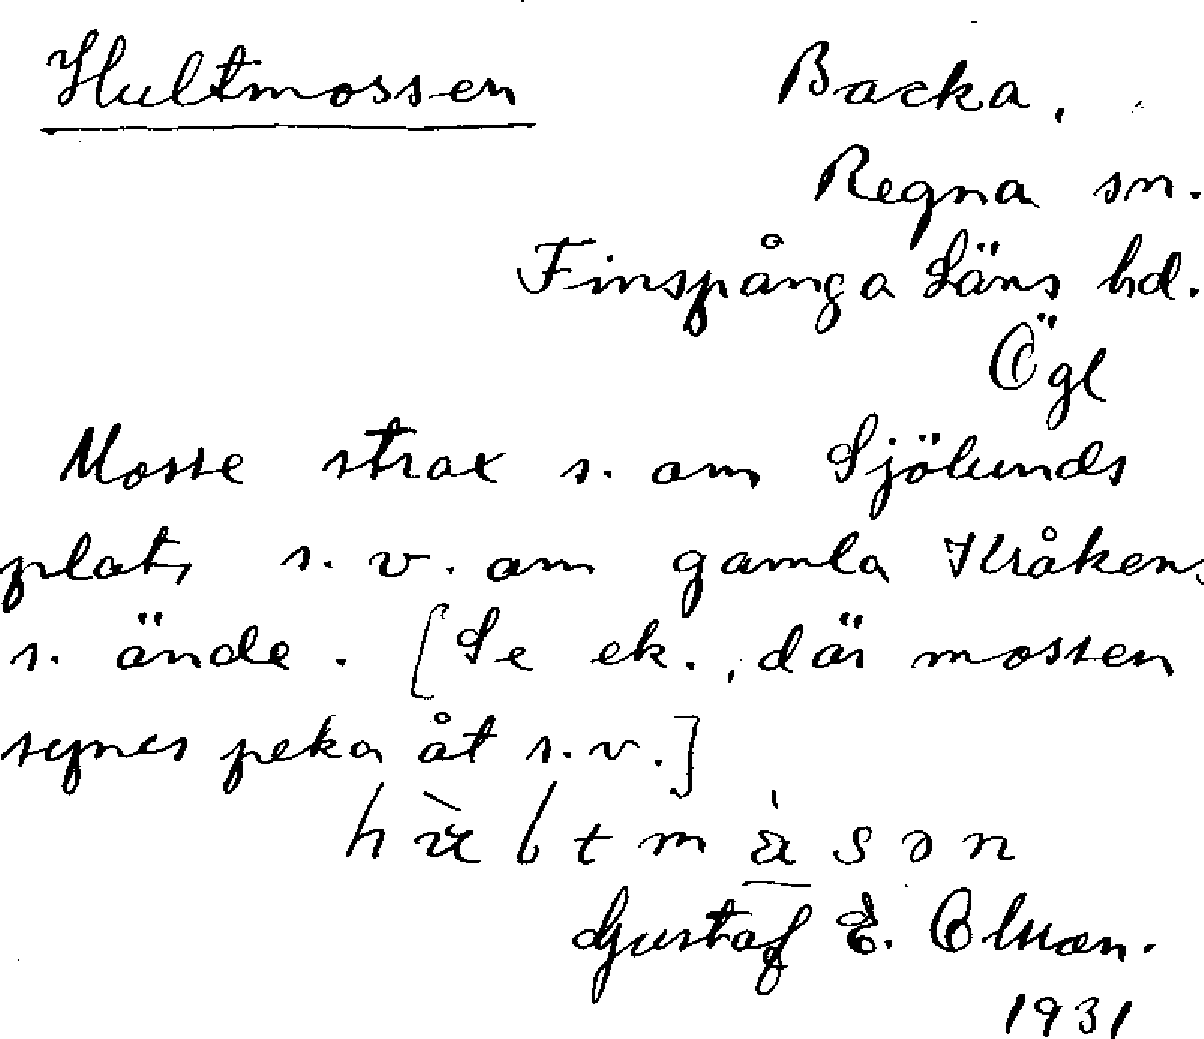 Hultmossen Backa.
Regna sn.
Finspånga Läns hd.
Ögl
Mosse strax s. om Sjölunds
plats, s.v. om gamla Kråkens
s. ände. [Se ek., där mossen
synes peka åt s.v.]
Gustaf E. Olsson.
1931